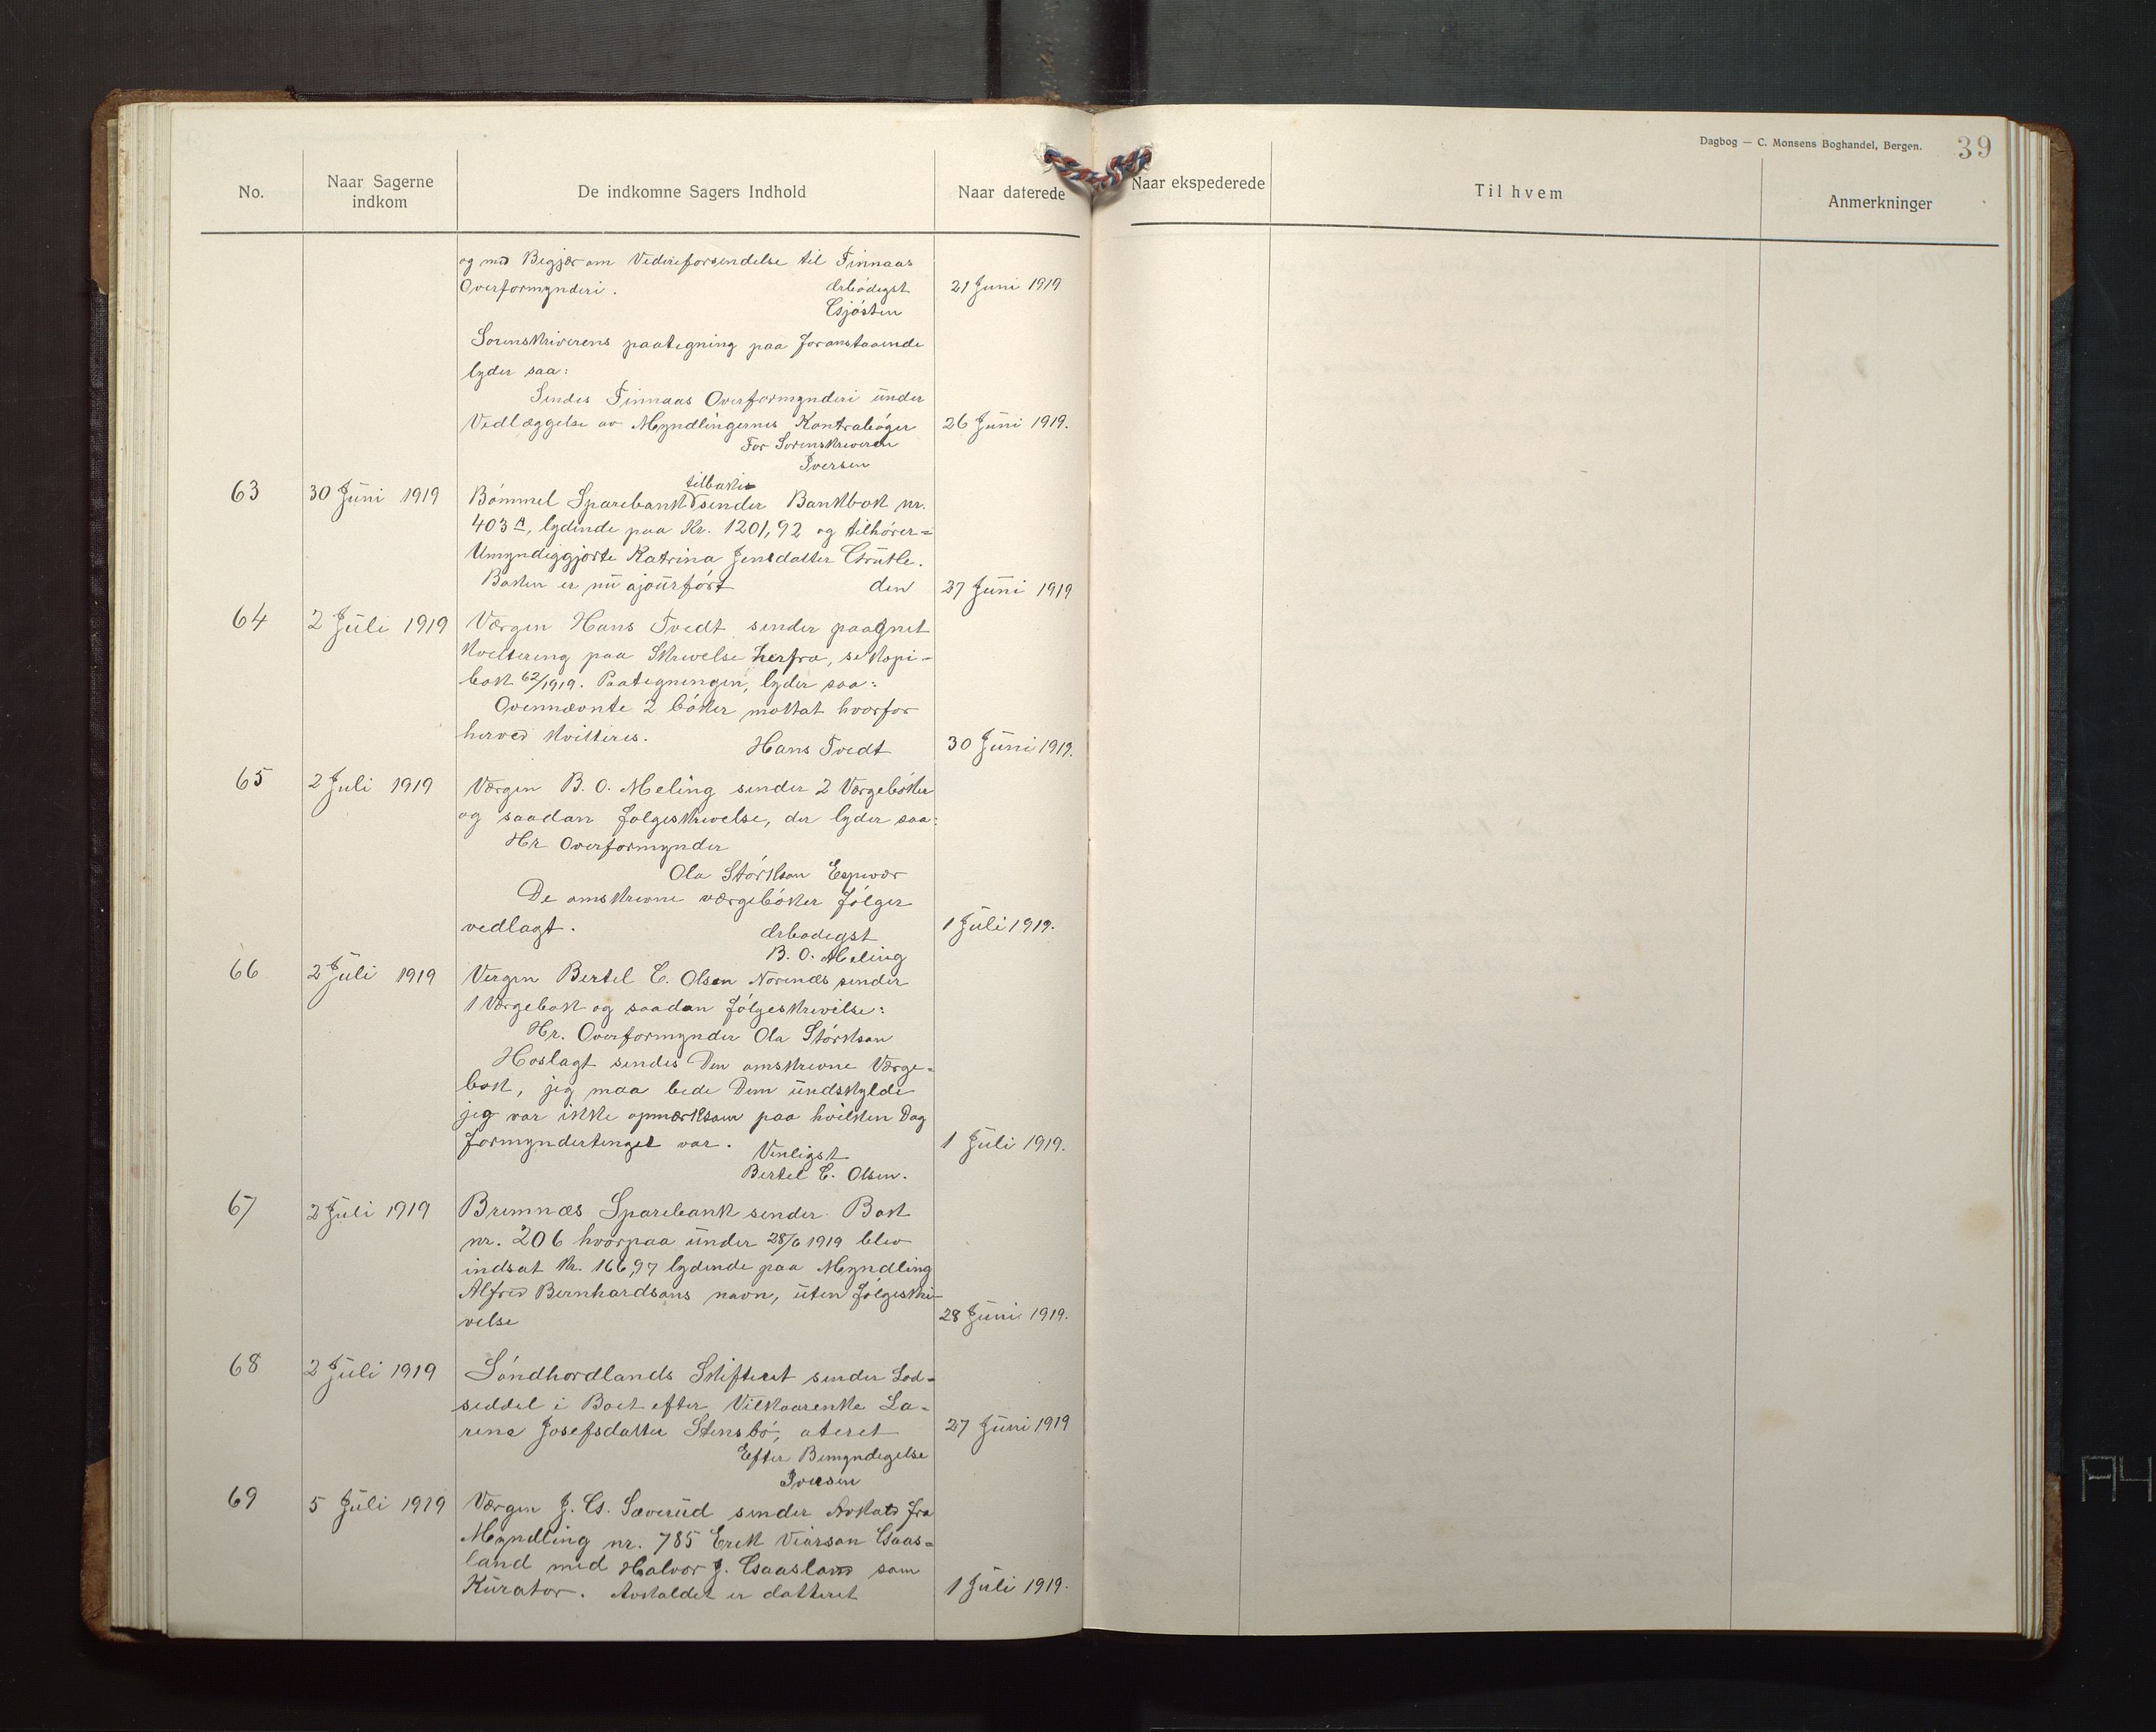 Dagbog — C. Monsens Boghandel, Bergen. 39
No. Naar Sagerne indkom De indkomne Sagers Indhold Naar daterede Naar ekspederede Til hvem Anmerkninger
og med Begjær om Videreforsendelse til Finnaas
Overformynderi. Ærbødigst 21 Juni 1919
Sorenskriverens paategning paa foranstaaende
lyder saa:
Sendes Finnaas Overformynderi under
Vedlæggelse av Myndlingernes Kontrabøger 26 Juni 1919.
For Sorenskriveren
Iversen
63 30 Juni 1919 Bømmel Sparebank tilbake sender Bankbok nr.
403 A, lydende paa Kr. 1201,92 og tilhører=
Umyndiggjorte Katrina Jensdatter
Boken er nu ajourført den 27 Juni 1919
64 2 Juli 1919 Værgen Hans Tvedt sender paategnet
kvittering paa Skrivelse herfra, se Kopi-
bok 62/1919. Paategningen, lyder saa:
Ovennævnte 2 bøker mottat hvorfor
herved kvitteres. Hans Tvedt 30 Juni 1919.
65 2 Juli 1919 Værgen B. O. Meling sender 2 Værgebøker
og saadan følgeskrivelse, der lyder saa:
Hr Overformynder
Ola Størkson Espevær
De omskrevne værgebøker følger
vedlagt. Ærbødigst 1 Juli 1919.
B. O. Meling
66 2 Juli 1919 Vergen Bertel E. Olsen Novenæs sender
1 Værgebok og saadan følgeskrivelse:
Hr. Overformynder Ola Størkson
Hoslagt sendes Den omskrevne Værge-
bok, jeg maa bede Dem undskylde
jeg var ikke opmerksom paa hvilken Dag
formyndertinget var. 1 Juli 1919.
Venligst
Bertel E. Olsen.
67 2 Juli 1919 Bremnæs Sparebank sender Bok
nr. 206 hvorpaa under 28/6 1919 blev
indsat Kr. 166,97 lydende paa Myndling
Alfred Bernhardsons navn, uten følgeskri-
velse 28 Juni 1919.
68 2 Juli 1919 Søndhordlands Skifteret sender Lod-
seddel i Boet efter Vilkaarenke La-
rina Josefsdatter Stensbø, ateret 27 Juni 1919
Efter Bemyndigelse
Iversen
69 5 Juli 1919 Værgen J. Cs. Sæverud sender Avkald fra
Myndling nr. 785 Erik Gaas=
land med Halvor J. Gaasland som
Kurator. Avkaldet er datteret 1 Juli 1919.